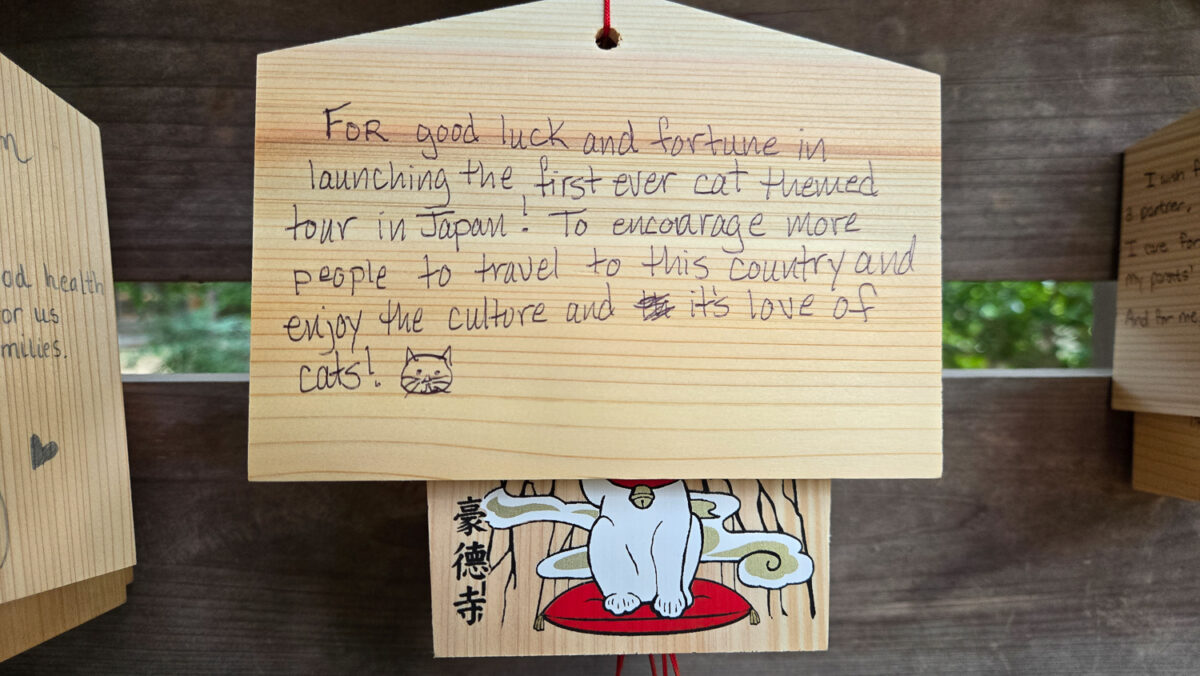 FOR good luck and fortune in
launching the first ever cat themed
tour in Japan! To encourage more
people to travel to this country and
enjoy the culture and it's love of
cats!
豪
德
寺
od health
or us
milies.
I wish
a partner,
I care for
my parents!
And for me